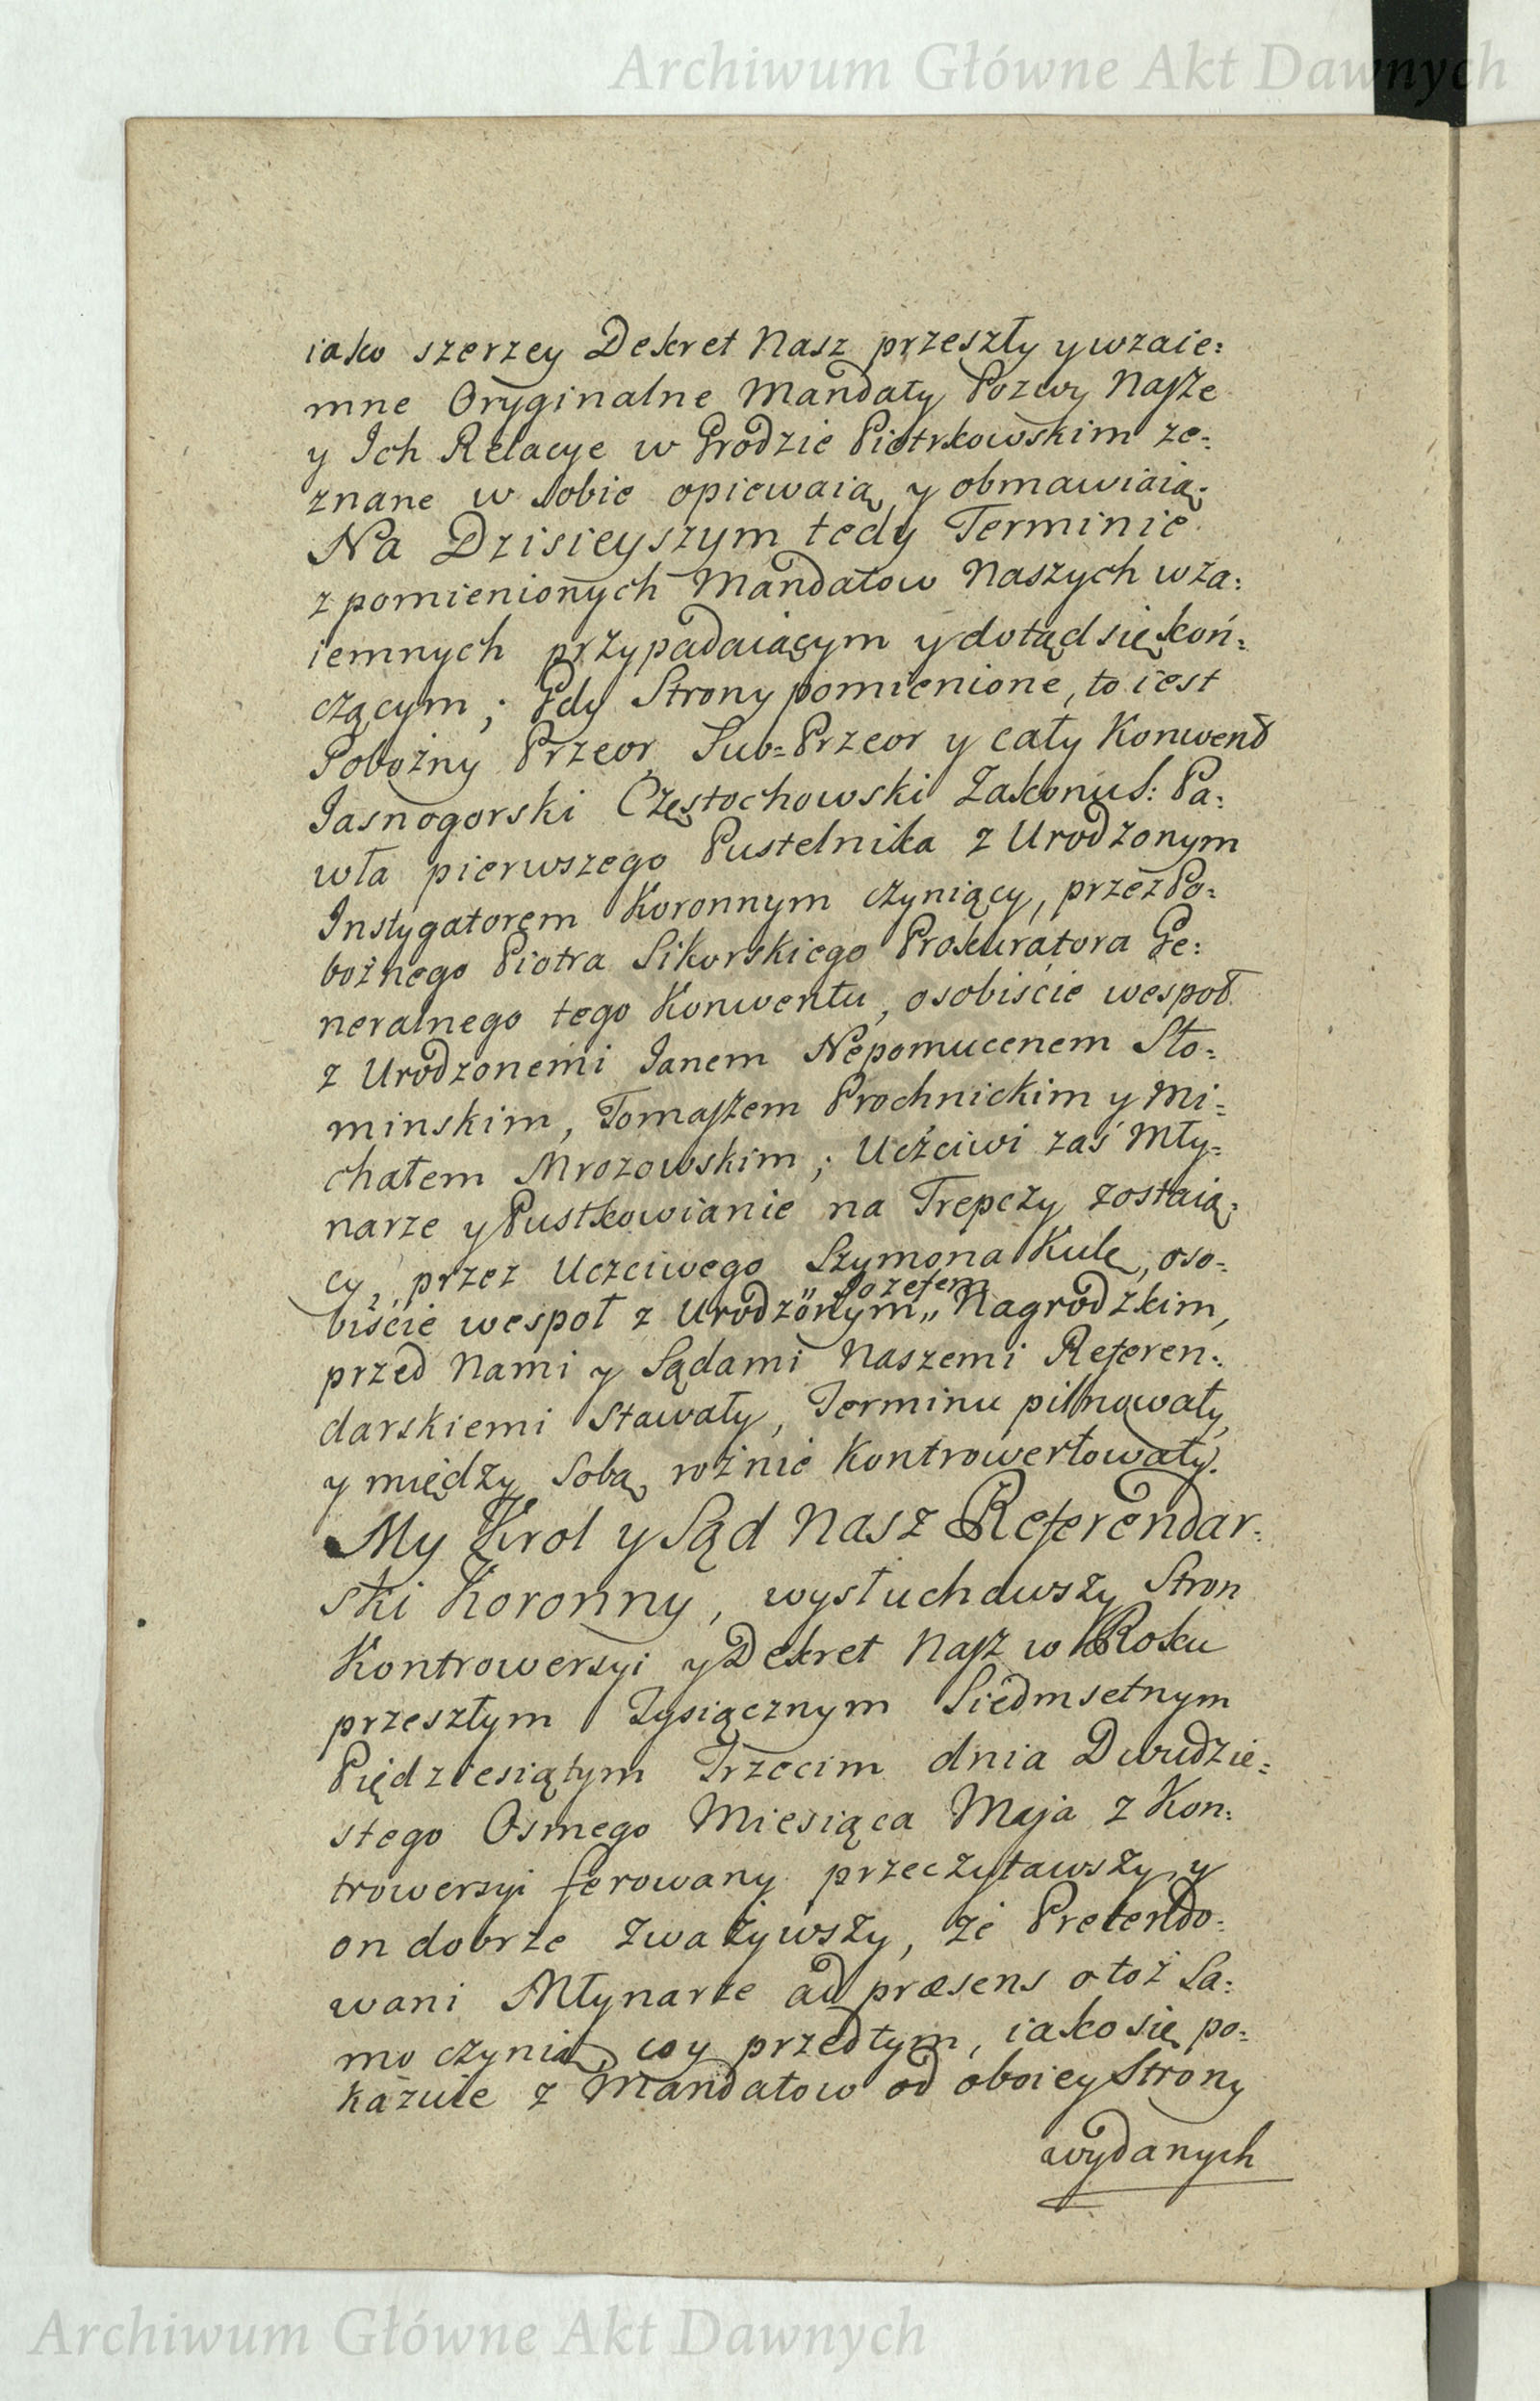 Archiwum Główne Akt Dawnych
iako szerzey Dekret Nasz przeszły y wzaie:
mne Oryginalne Mandaty Pozwy Nasze
y Ich Relacye w Grodzie Piotrkowskim ze:
znane w sobie opiewaią y obmawiaią.
Na Dzisieyszym tedy Terminie
z pomienionych Mandatow Naszych wza:
iemnych przypadaiącym y dotąd się koń:
czącym; Gdy Strony pomienione, to iest
Pobożny Przeor, Sub=Przeor y cały Konwend
Jasnogorski Częstochowski Zakonu S: Pa:
wła pierwszego Pustelnika z Urodzonym
Instygatorem Koronnym czyniący, przez Po:
bożnego Piotra Sikorskiego Prokuratora Ge:
neralnego tego Konwentu, osobiście wespoł
z Urodzonemi Janem Nepomucenem Sło:
minskim, Tomaszem Prochnickim y Mi:
chałem Mrozowskim; Uczciwi zaś Mły:
narze y Pustkowianie na Trepczy zostaią:
cy, przez Uczciwego Szymona Kulę, oso:
biście wespoł z Urodzonym „ Jozefem „ Nagrodzkim,
przed Nami y Sądami Naszemi Referen:
darskiemi stawały, Terminu pilnowały,
y między sobą rożnie Kontrowertowały.
My Krol y Sąd Nasz Referendar:
ski Koronny, wysłuchawszy Stron
Kontrowersyi y Dekret Nasz w Roku
przeszłym Tysiącznym Siedmsetnym
Piędziesiątym Trzecim dnia Dwudzie:
stego Osmego Miesiąca Maja z Kon:
trowersyi ferowany przeczytawszy, y
on dobrze zważywszy, że Pretendo:
wani Młynarze ad præsens otoż sa:
mo czynią co y przedtym, iako się po:
kazuie z Mandatow od oboiey Strony
wydanych
Archiwum Główne Akt Dawnych